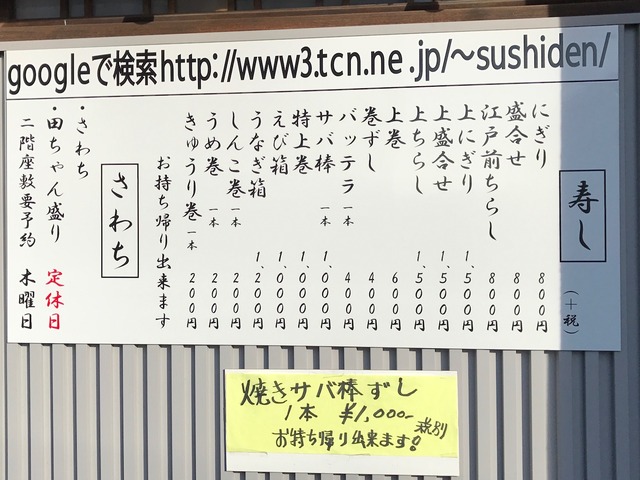 googleで検索http://www3.tcn.ne.jp/~sushiden/
寿し
(+税)
にぎり 800円
盛合せ 800円
江戸前ちらし 800円
上にぎり 1,500円
上盛合せ 1,500円
上ちらし 1,500円
上巻 600円
巻ずし 400円
バッテラ 一本 400円
サバ棒 一本 1,000円
特上巻 1,000円
えび箱 1,000円
うなぎ箱 1,200円
しんこ巻 一本 200円
うめ巻 一本 200円
きゅうり巻 一本 200円
お持ち帰り出来ます
さわち
・さわち
・田ちゃん盛り 定休日
二階座敷要予約 木曜日
焼きサバ棒ずし
1本 ¥1,000- 税別
お持ち帰り出来ます!